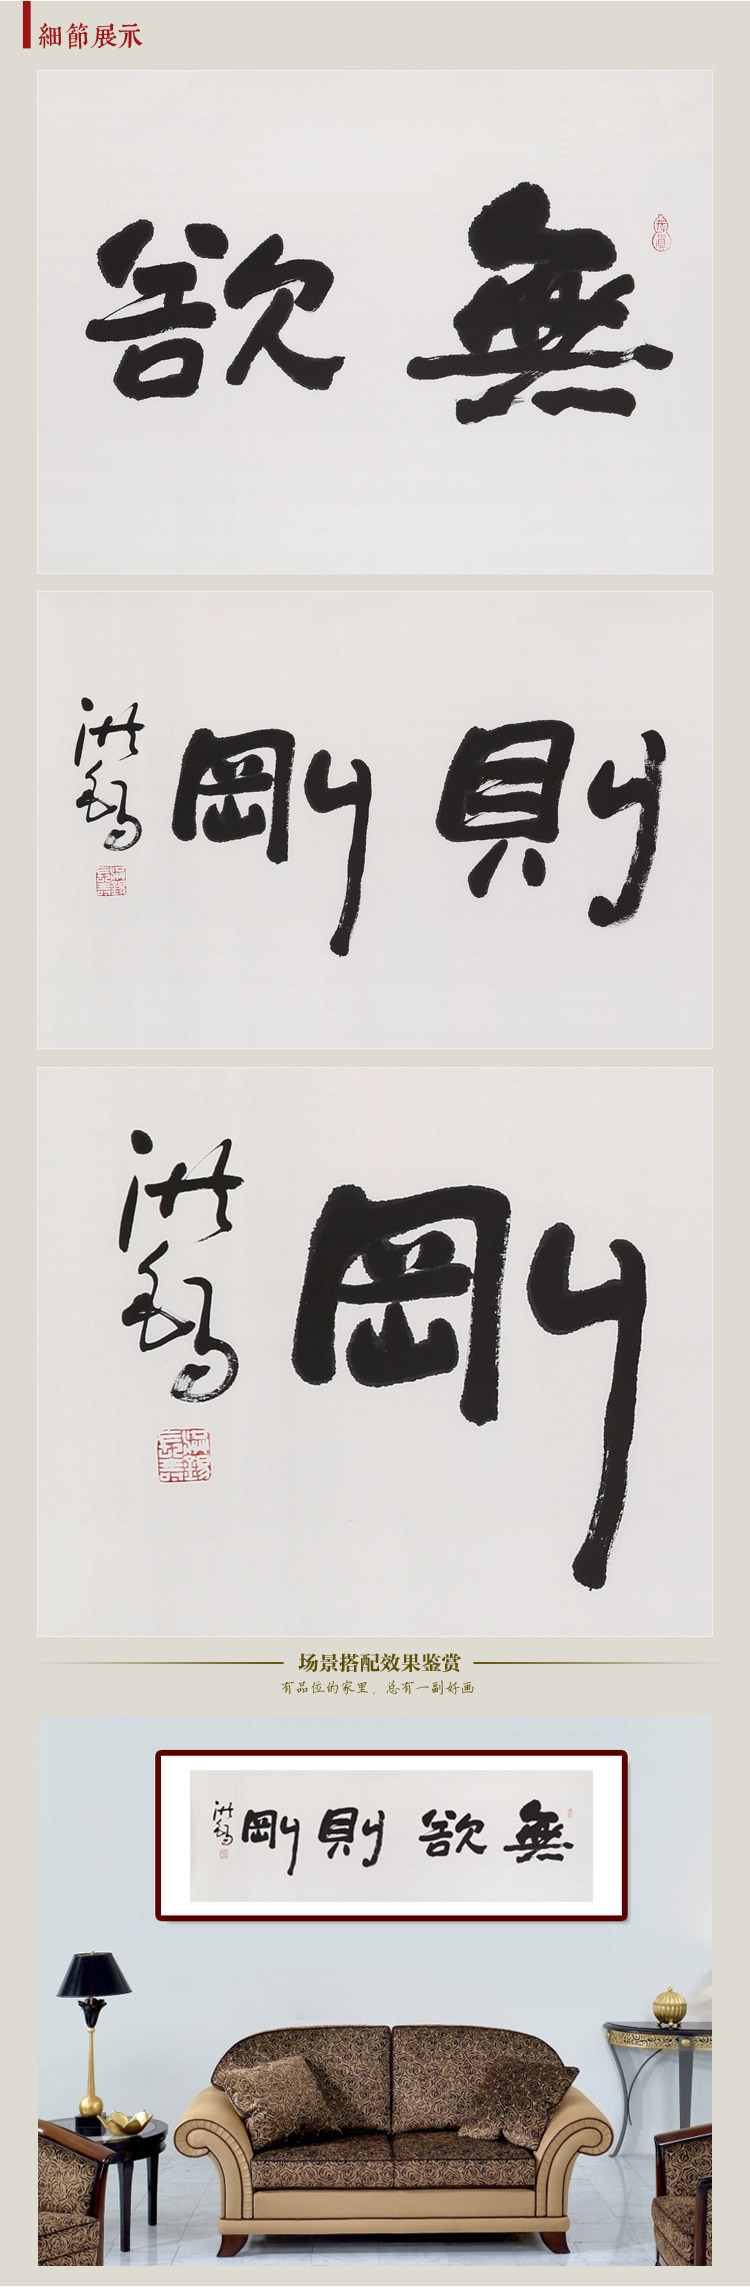 細節展示
無欲
則剛
洪
剛
洪
场景搭配效果鉴赏
有品位的家里，总有一副好画
無欲則剛
洪